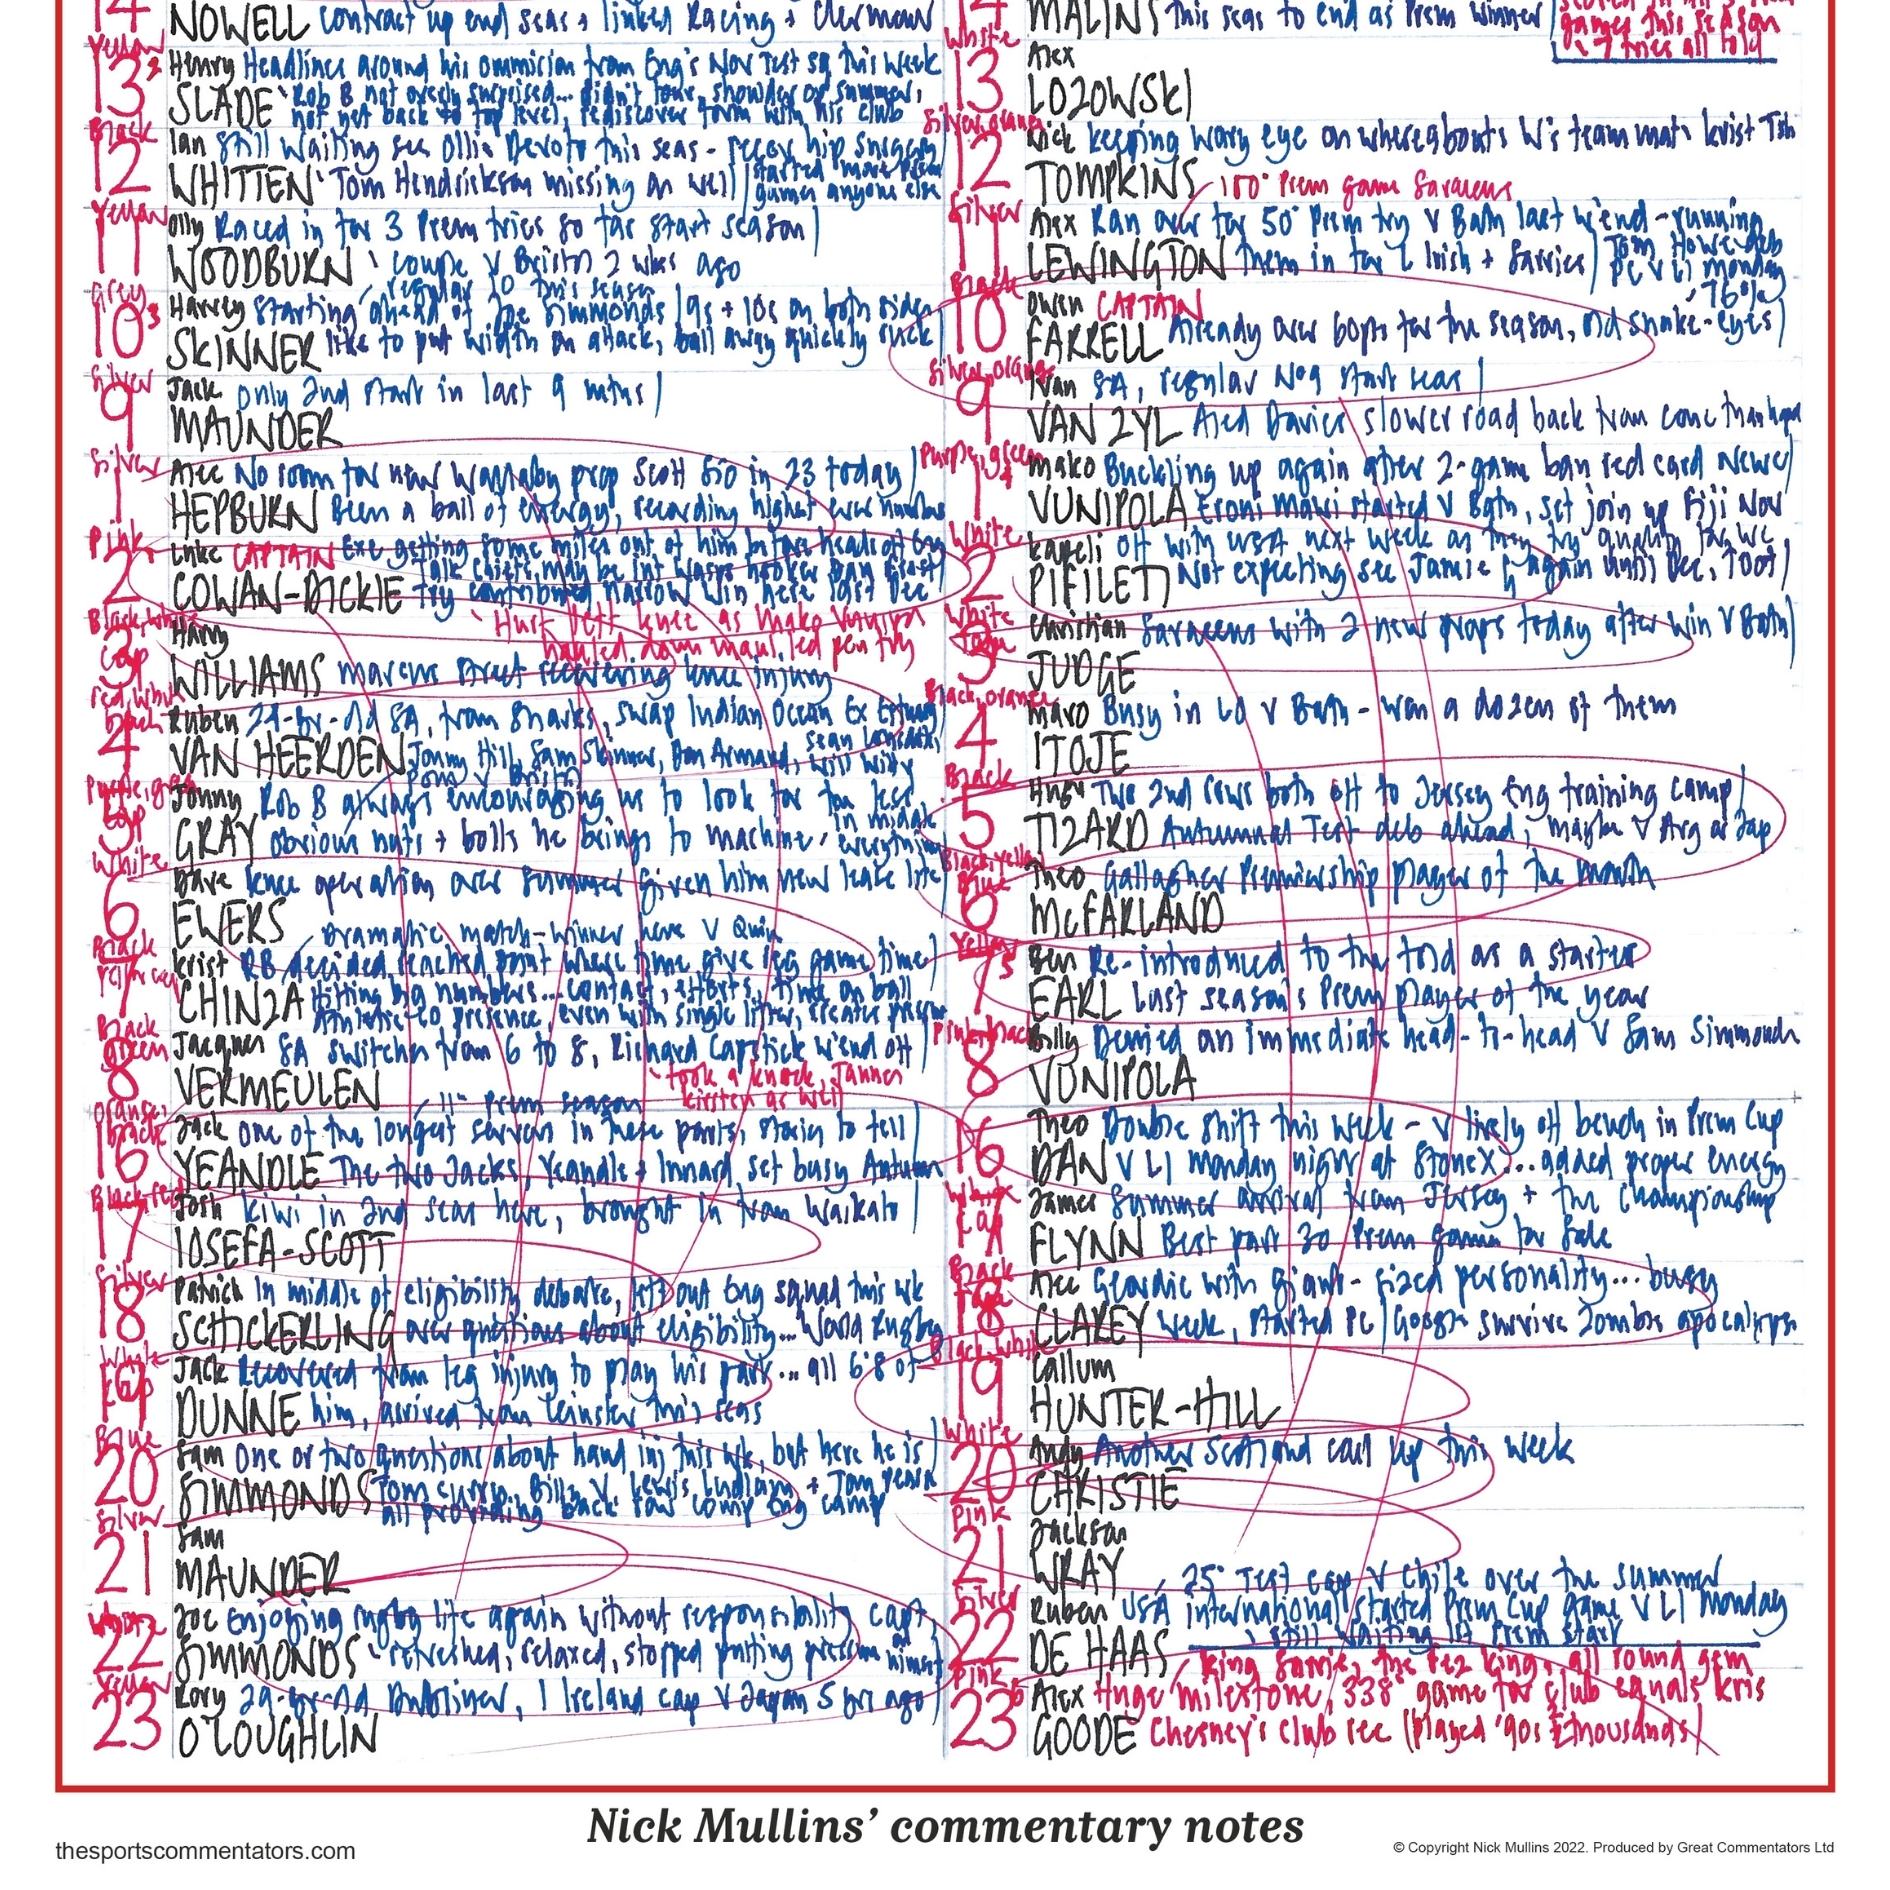 14
NOWELL contract up end seas, linked Racing + Clermont
Yellow
13 Henry Headlines around his ommision from Eng's Nov Test sq this week
SLADE Rob B not overly surprised... didn't tour, shoulder op summer,
not yet back to top level, rediscover form with his club
Black
12 Ian Still waiting see Ollie Devoto this seas - recov hip surgery
WHITTEN Tom Hendrickson missing as well started more Prem
games anyone else
Yellow
11 Olly Raced in for 3 Prem tries so far start season
WOODBURN couple v Bristol 2 wks ago
Grey regular 10 this season
10 Harvey Starting ahead of Joe Simmonds 9s + 10s on both sides
SKINNER like to put width on attack, ball away quickly ruck
Silver
9 Jack only 2nd start in last 9 mths
MAUNDER
Silver
1 Alec No room for new Wallaby prop Scott Sio in 23 today
HEPBURN Been a ball of energy, recording highest ever numbers
Pink
2 Luke CAPTAIN Exe getting some miles out of him before heads off Eng
Talk Chiefs may be int Wasps hooker Dan Frost
COWAN-DICKIE try contributed narrow win here last Dec
Black, white Hurt left knee as Mako Vunipola
3 Harry hauled down maul, led pen try
cap
WILLIAMS Marcus Street recovering knee injury
red, white
black
4 Ruben 24-yr-old SA, from Sharks, swap Indian Ocean Ex Estuary
VAN HEERDEN Jonny Hill, Sam Skinner, Don Armand, Sean Lonsdale, Will Witty
Purple, green POTM v Bristol
5 Jonny Rob B always encouraging us to look for the less
cap in middle
GRAY obvious nuts + bolts he brings to machine, everything
White
6 Dave knee operation over summer given him new lease life
EWERS
Black Dramatic match-winner here v Quin
yellow cap
7 Krist RB decided reached point where time give reg game time
CHINZA Hitting big numbers... contact, efforts, time on ball
Athletic LO presence, even with single lifter, creates pressure
Black
green
8 Jacques SA switches from 6 to 8, Richard Capstick w'end off
VERMEULEN took a knock, Jannes
Kirsten as well
Orange, 11th Prem season
black
16 Jack one of the longest servers in these parts, stories to tell
YEANDLE The two Jacks, Yeandle + Innard set busy Autumn
Black, red
17 Josh Kiwi in 2nd seas here, brought in from Waikato
IOSEFA-SCOTT
Silver
18 Patrick In middle of eligibility debate, left out Eng squad this wk
SCHICKERLING over questions about eligibility... World Rugby
White
cap
19 Jack Recovered from leg injury to play his part... all 6'8 of
DUNNE him, arrived from Leinster this seas
Blue
20 Sam One or two questions about hand inj this wk, but here he is
SIMMONDS Tom Curry, Billy V, Lewis Ludlam + Tom Pearson
all providing back row comp Eng camp
Silver
21 Sam
MAUNDER
White
22 Joe Enjoying rugby life again without responsibility capt,
SIMMONDS refreshed, relaxed, stopped putting pressure on himself
Yellow
23 Rory 29-yr-old Dubliner, 1 Ireland cap v Japan 5 yrs ago
O'LOUGHLIN
14
MALINS this seas to end as Prem winner
games this season
7 tries all told
White
13 Alex
LOZOWSKI
Silver, orange
12 Nick keeping wary eye on whereabouts W's team mate Krist Tsh
TOMPKINS 100° Prem game Saracens
Silver
11 Alex Ran over for 50° Prem try v Bath last w'end - running
LEWINGTON them in for L Irish + Sarries Tom Howe deb
PC v LI Monday
Black 76%
10 Owen CAPTAIN
FARRELL Already over 60pts for the season, old snake-eyes
Silver, orange
9 Ivan SA, regular No9 start seas
VAN ZYL Aled Davies slower road back from conc than hoped
Purple, green
1 Mako Buckling up again after 2-game ban red card Newc
VUNIPOLA Eroni Mawi started v Bath, set join up Fiji Nov
White
2 Kapeli Off with USA next week as they try qualify for WC
PIFILETI Not expecting see Jamie G again until Dec, foot
White
Tape
3 Christian Saracens with 2 new props today after win v Bath
JUDGE
Black, orange
4 Maro Busy in LO v Bath - won a dozen of them
ITOJE
Black
5 Hugo Two 2nd rows both off to Jersey Eng training camp
TIZARD Autumnal Test deb ahead, maybe v Arg or Jap
Black, yellow
Blue
6 Theo Gallagher Premiership player of the month
McFARLAND
Yellow
7 Ben Re-introduced to the fold as a starter
EARL Last season's Prem player of the year
Pink, black
8 Billy Denied an immediate head-to-head v Sam Simmonds
VUNIPOLA
16 Theo Double shift this week - v lively off bench in Prem Cup
DAN v LI Monday night at StoneX... added proper energy
White
cap
17 James Summer arrival from Jersey + the Championship
FLYNN Best part 30 Prem games for Sale
Black
Tape
18 Alec Geordie with giant-sized personality... busy
CLAREY week, started PC Googse survive zombie apocalypse
Black, white
19 Callum
HUNTER-HILL
White
20 Andy Another Scotland call up this week
CHRISTIE
Pink
21 Jackson
WRAY 25° Test cap v Chile over the summer
Silver
22 Ruben USA international started Prem Cup game v LI Monday
DE HAAS still waiting 1st Prem start
Pink King Sarrie, the Fez king, all round gem
23 Alex Huge milestone, 338° game for club equals Kris
GOODE Chesney's club rec (played '90s + thousands)
Nick Mullins' commentary notes
thesportscommentators.com
© Copyright Nick Mullins 2022. Produced by Great Commentators Ltd